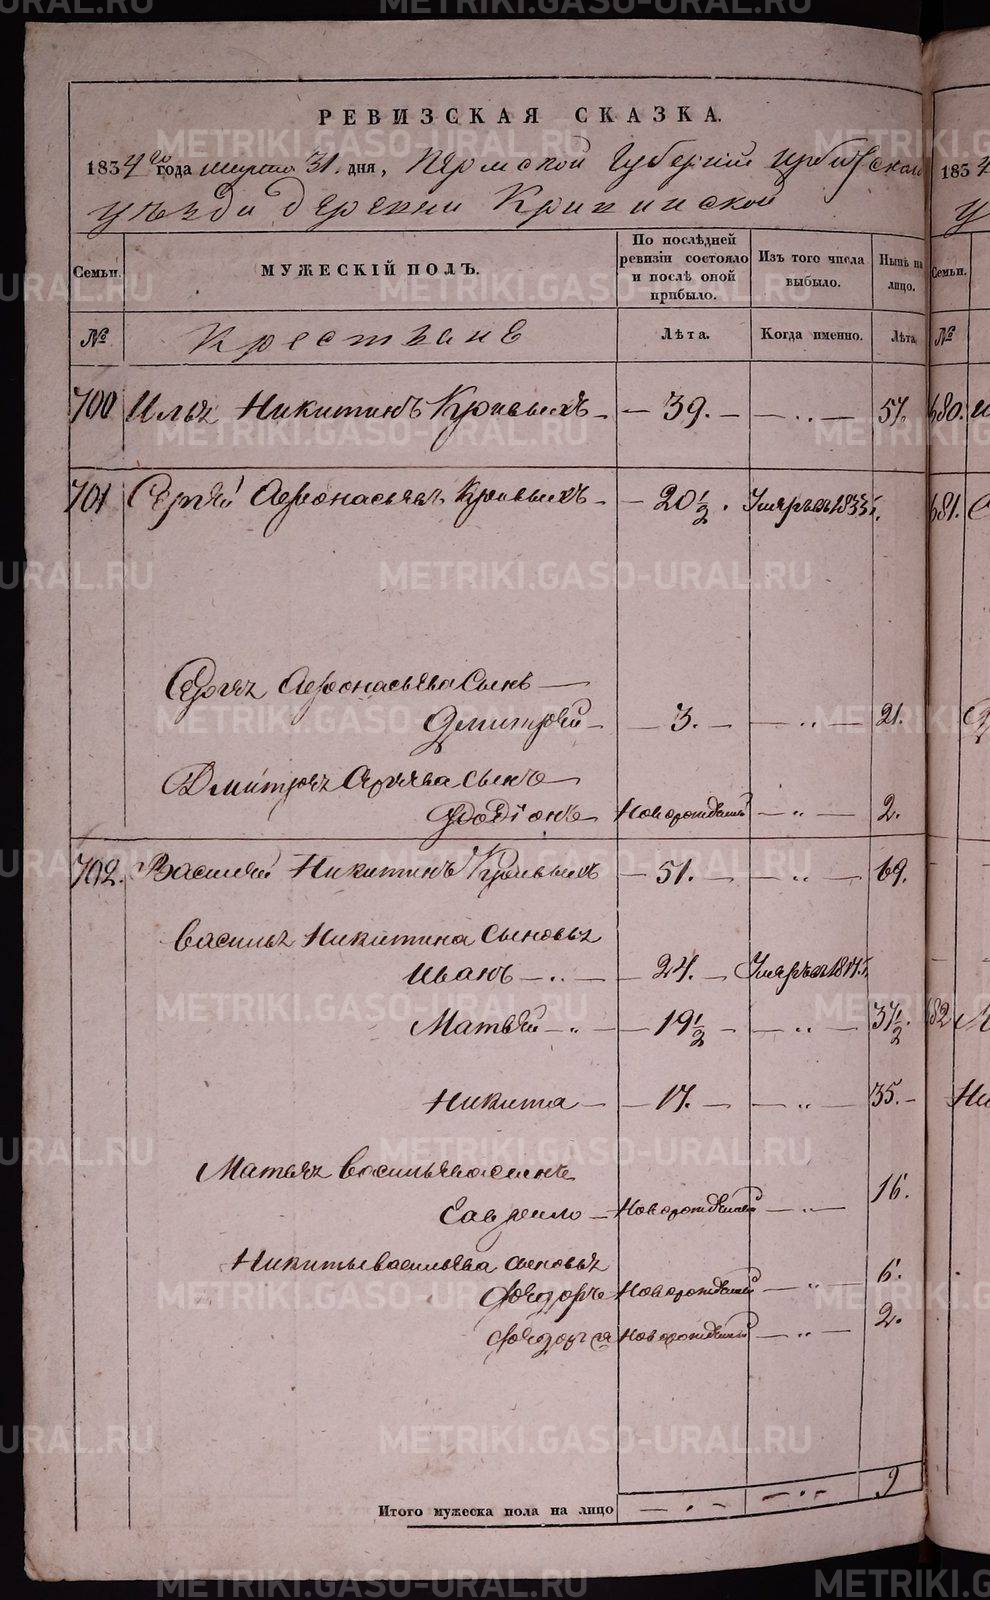 РЕВИЗСКАЯ СКАЗКА.
1834го года марта 31. дня, Пермской Губернии Ирбитской
уѣзда деревни Крикинской
Семьи. МУЖЕСКІЙ ПОЛЪ. По послѣдней ревизіи состояло и послѣ оной прибыло. Изъ того числа выбыло. Нынѣ на лицо.
№ Крестьяне Лѣта. Когда именно. Лѣта.
700 Илья Никитинъ Кривыхъ — 39. — — „ — 57.
701 Сергѣй Афонасьевъ Кривыхъ — 20½. Умеръ въ 1833 г.
Сергѣя Афонасьева Сынъ —
Дмитрей — — 3. — — „ — 21.
Дмитрея Сергѣева сынъ —
Родіонъ Новорожденный — „ — 2.
702. Василей Никитинъ Кривыхъ — 51. — — „ — 69.
Василья Никитина сыновья
Иванъ — „ — — 24. — Умеръ въ 1817 г.
Матвей — „ — — 19½ — — „ — 37½.
Никита — — 17. — — „ — 35. —
Матвея Васильева сынъ
Гаврило — Новорожденный — „ — 16.
Никиты Васильева сыновья
Федоръ Новорожденный — „ — 6.
Новорожденный — „ — 2.
Итого мужеска пола на лицо — „ — — „ — 9
1834
№
680.
681.
682
METRIKI.GASO-URAL.RU